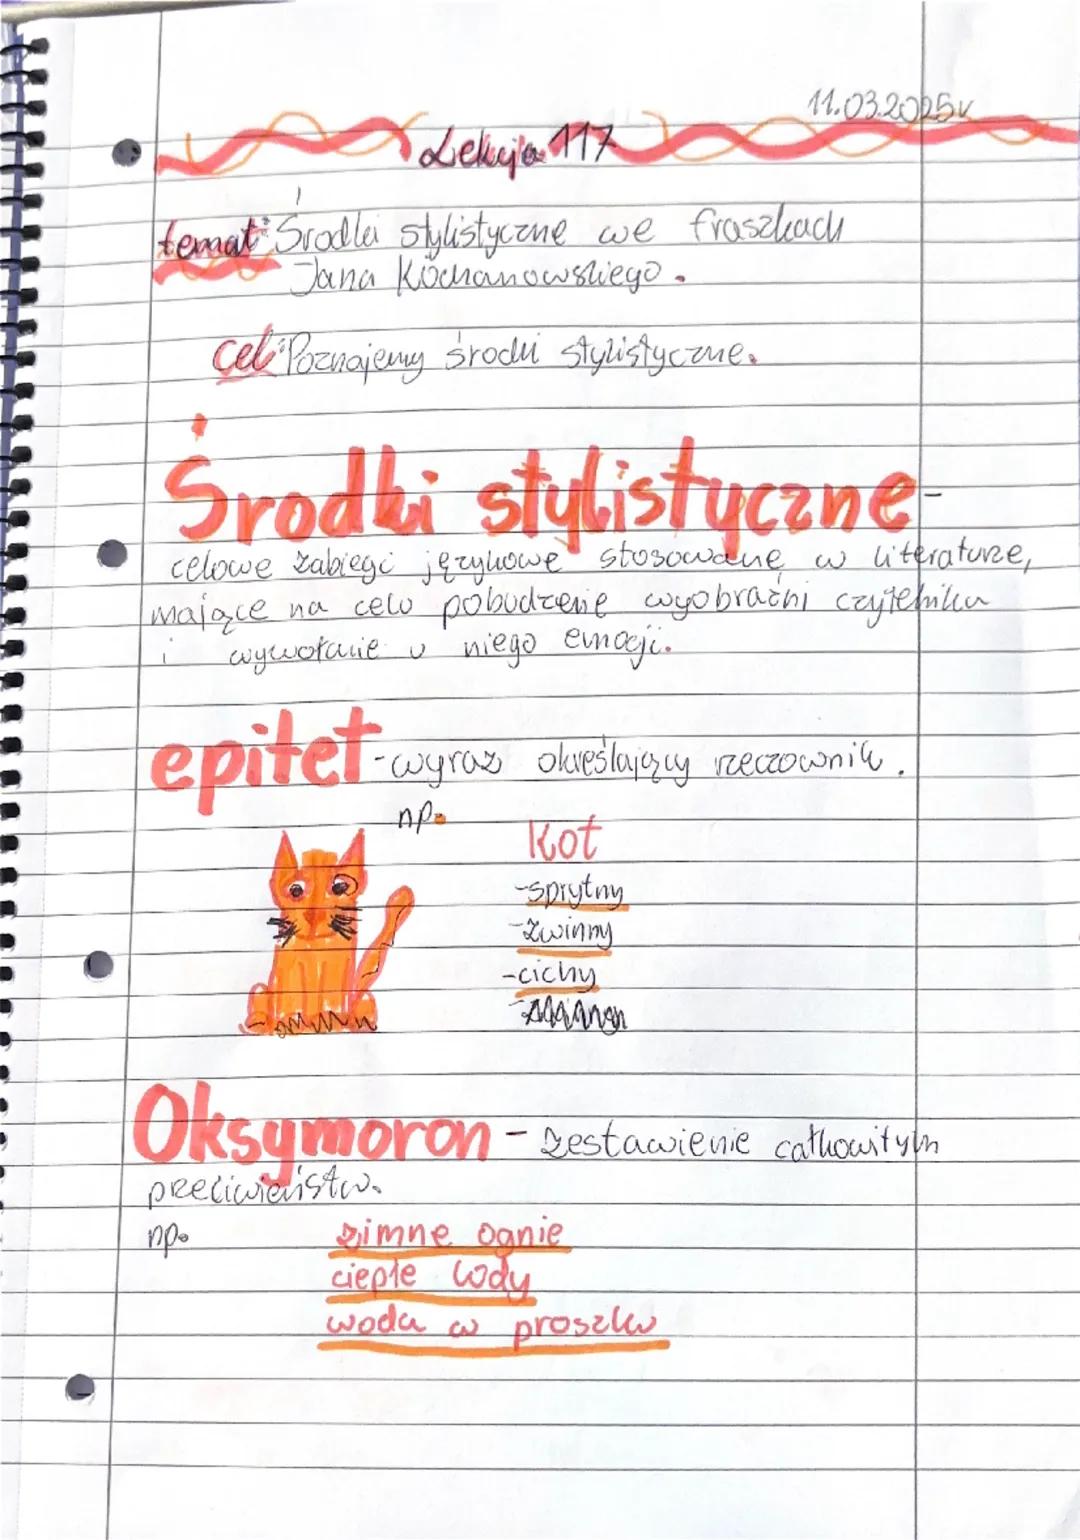 11.03.2025r
Lekcja 117
temat: Środki stylistyczne we fraszkach
Jana Kochanowskiego.
cel: Poznajemy środki stylistyczne.
Środki stylistyczne-
celowe zabiegi językowe stosowane w literaturze,
mające na celu pobudzenie wyobraźni czytelnika
i wywołanie u niego emocji.
epitet-wyraz określający rzeczownik.
np.
kot
-sprytny
-zwinny
-cichy
Oksymoron - zestawienie całkowitym
przeciwieństw.
np.
zimne ognie
ciepłe lody
woda w proszku